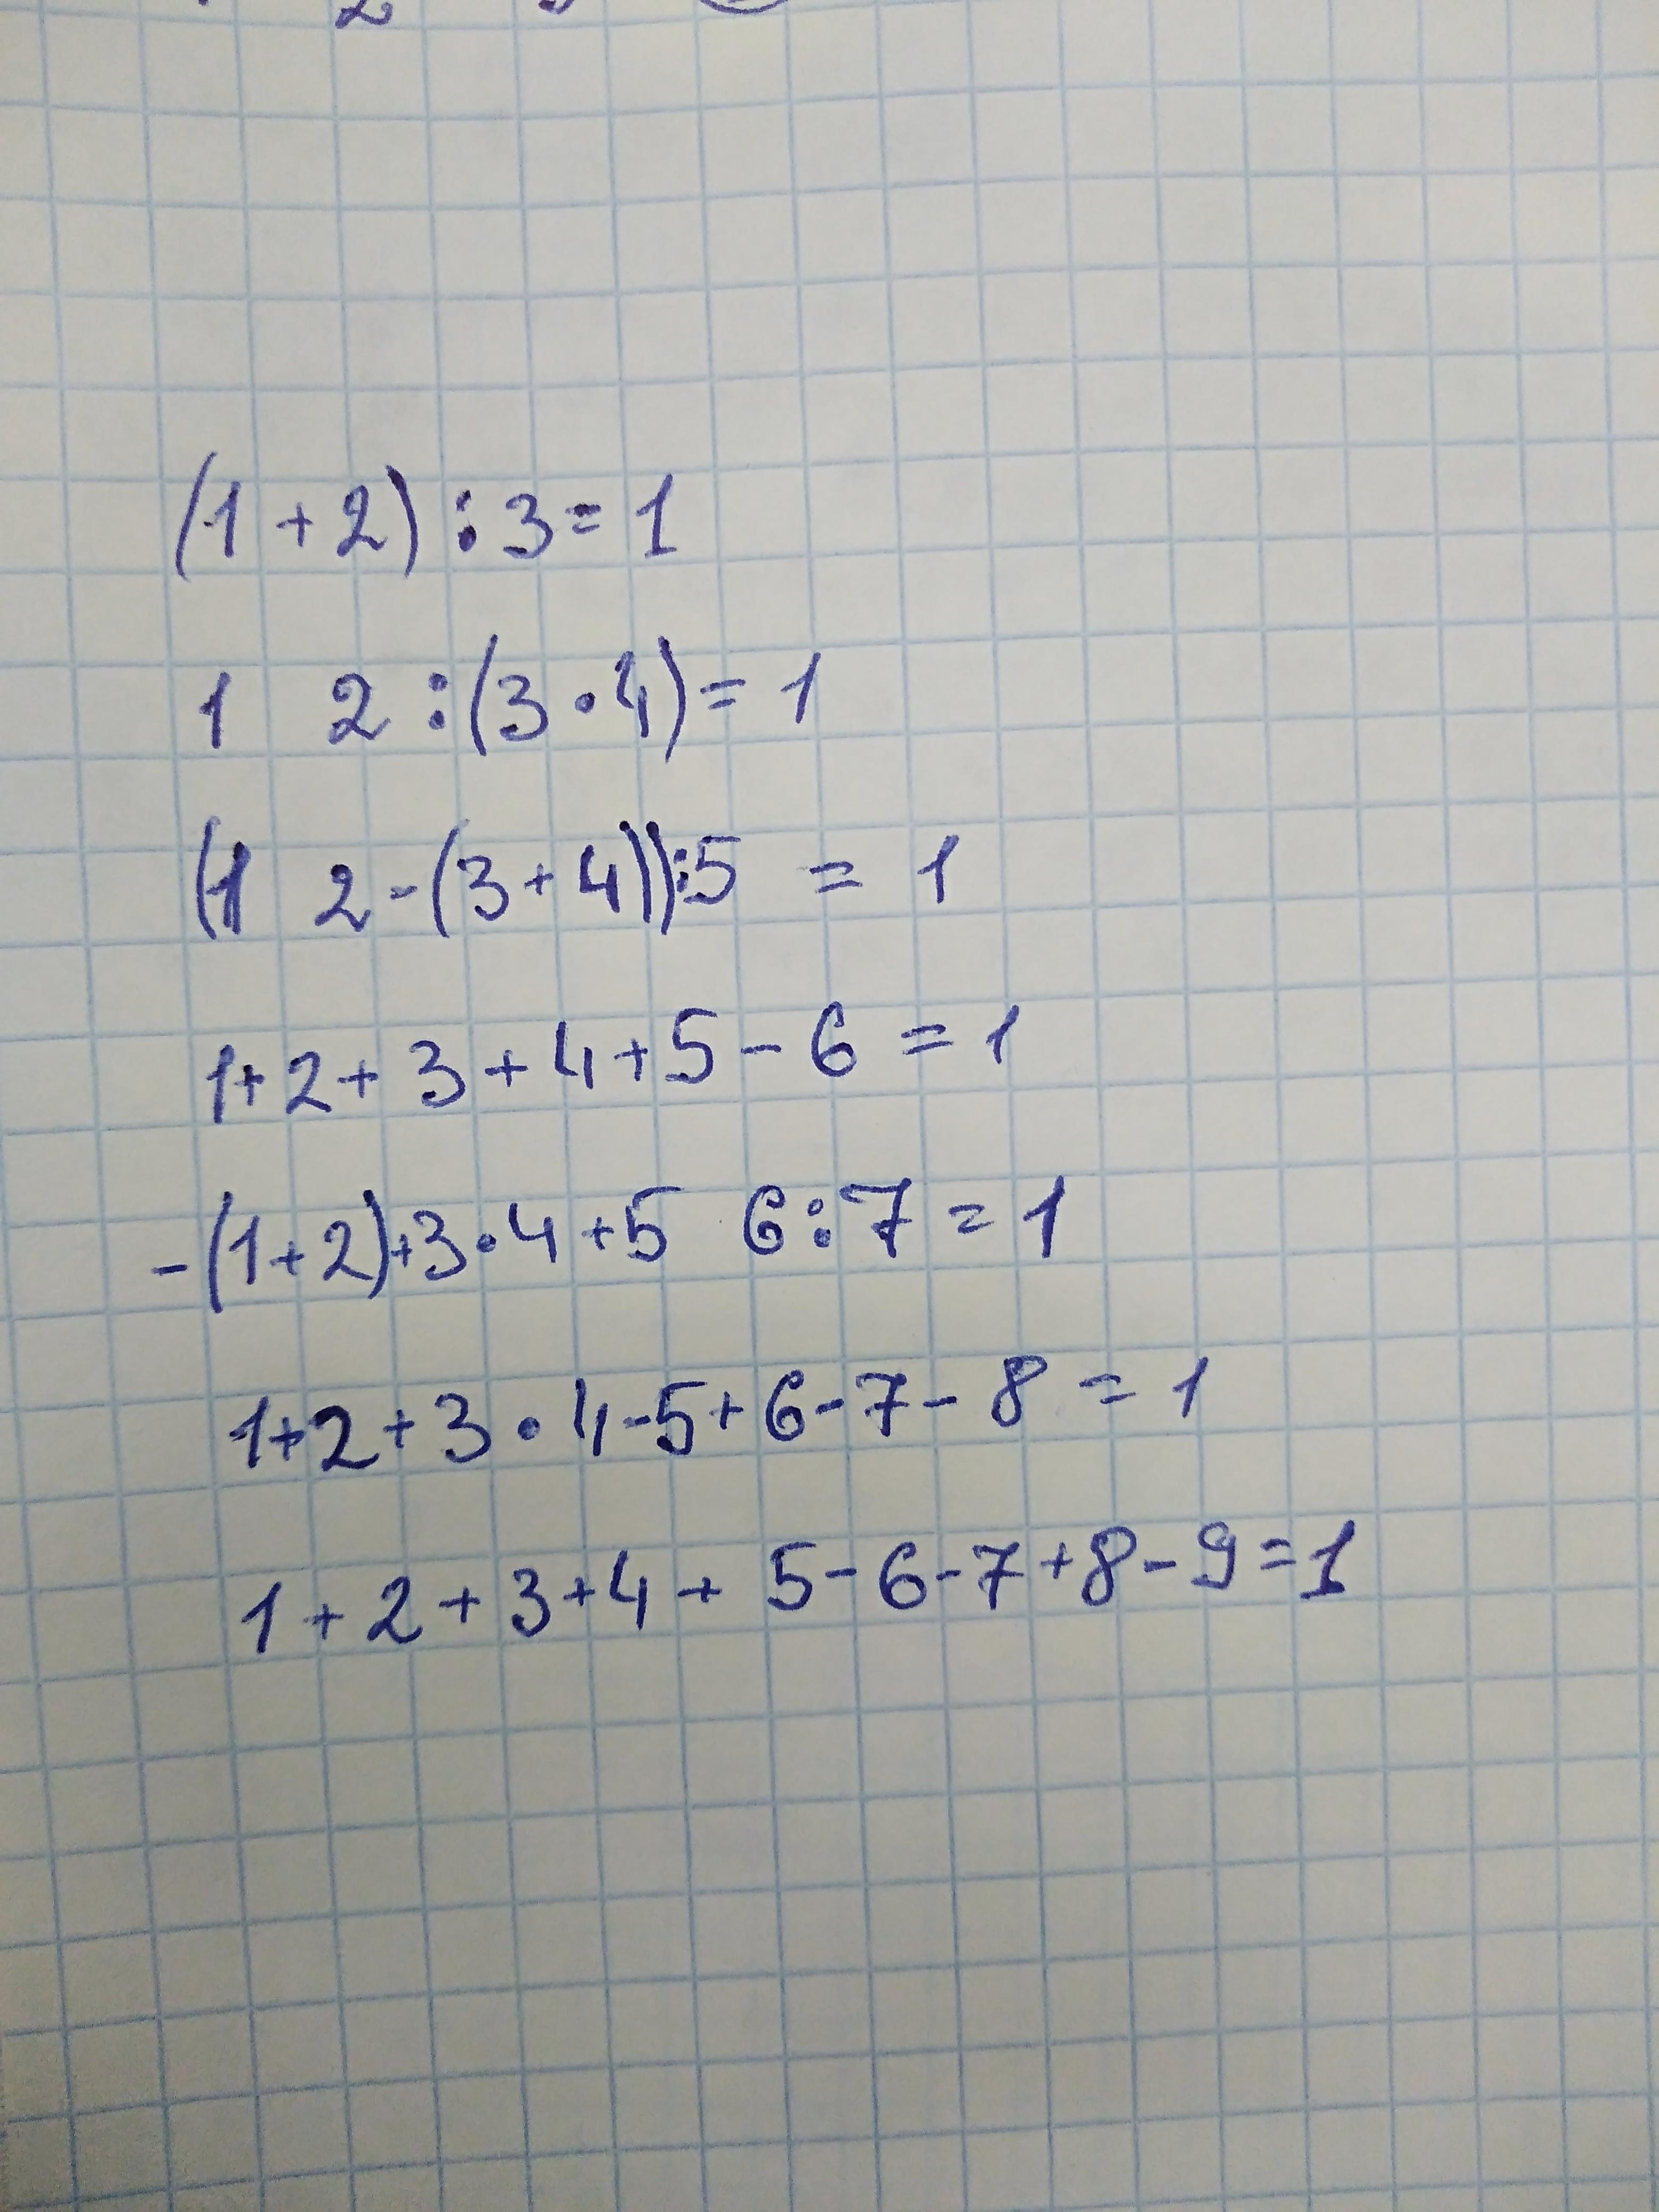 (1 + 2) : 3 = 1
1 2 : (3 · 4) = 1
(1 2 - (3 + 4)) : 5 = 1
1 + 2 + 3 + 4 + 5 - 6 = 1
-(1 + 2) + 3 · 4 + 5 6 : 7 = 1
1 + 2 + 3 · 4 - 5 + 6 - 7 - 8 = 1
1 + 2 + 3 + 4 + 5 - 6 - 7 + 8 - 9 = 1